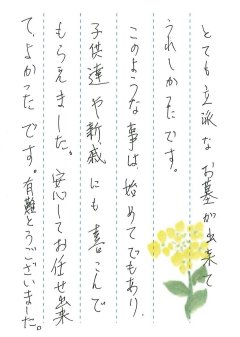 とても立派なお墓が出来て
うれしかったです。
このような事は始めてでもあり、
子供達や親戚にも喜こんで
もらえました。安心してお任せ出来
て、よかったです。有難とうございました。